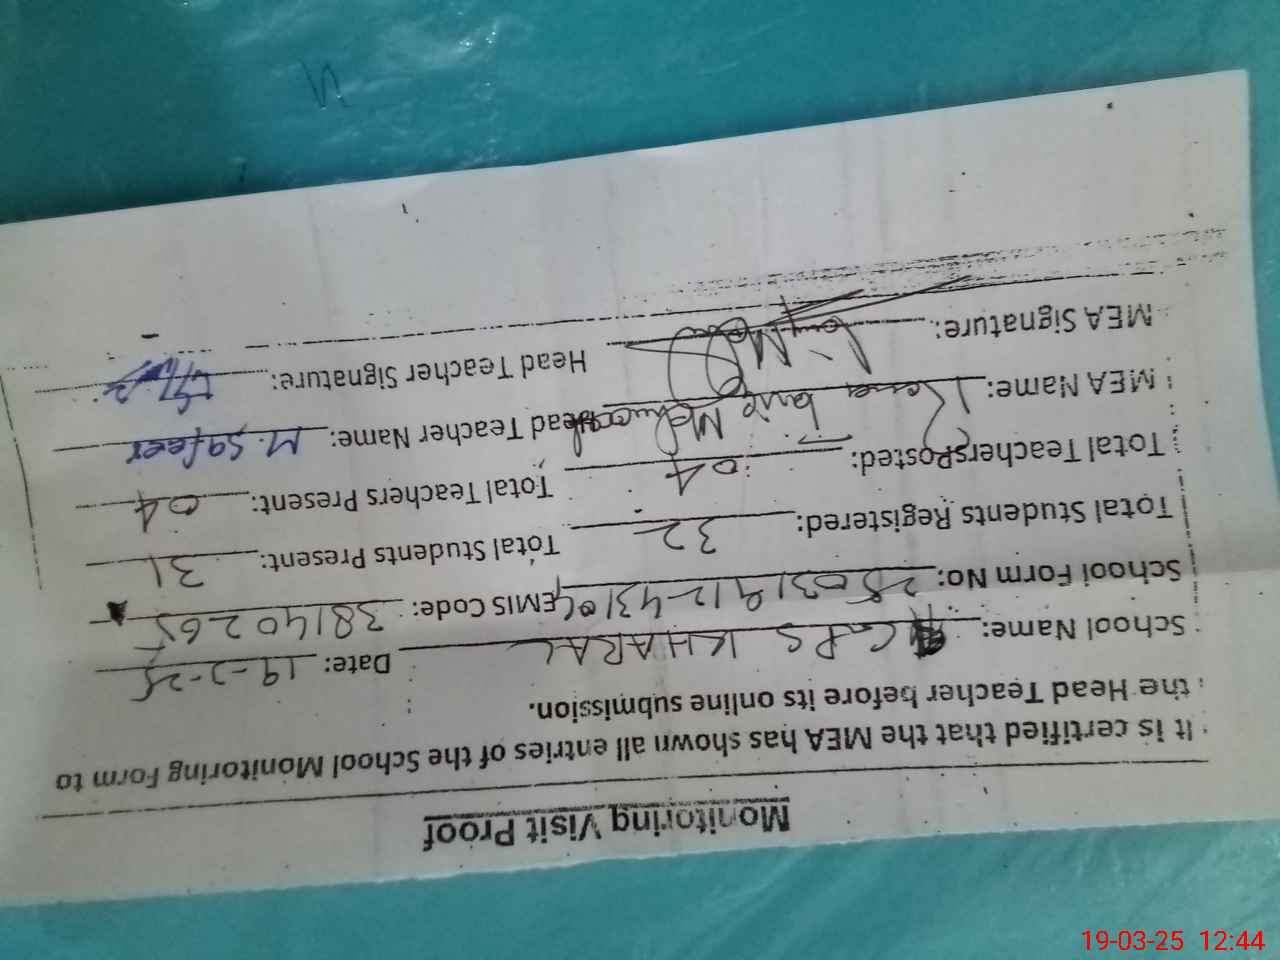 Monitoring Visit Proof
It is certified that the MEA has shown all entries of the School Monitoring Form to
the Head Teacher before its online submission.
School Name: GPS KHARAL Date: 19-3-25
School Form No: EMIS Code: 38140265
Total Students Registered: 32 Total Students Present: 31
Total Teachers Posted: 04 Total Teachers Present: 04
MEA Name: Head Teacher Name: M. Safeer
MEA Signature: Head Teacher Signature:
19-03-25 12:44